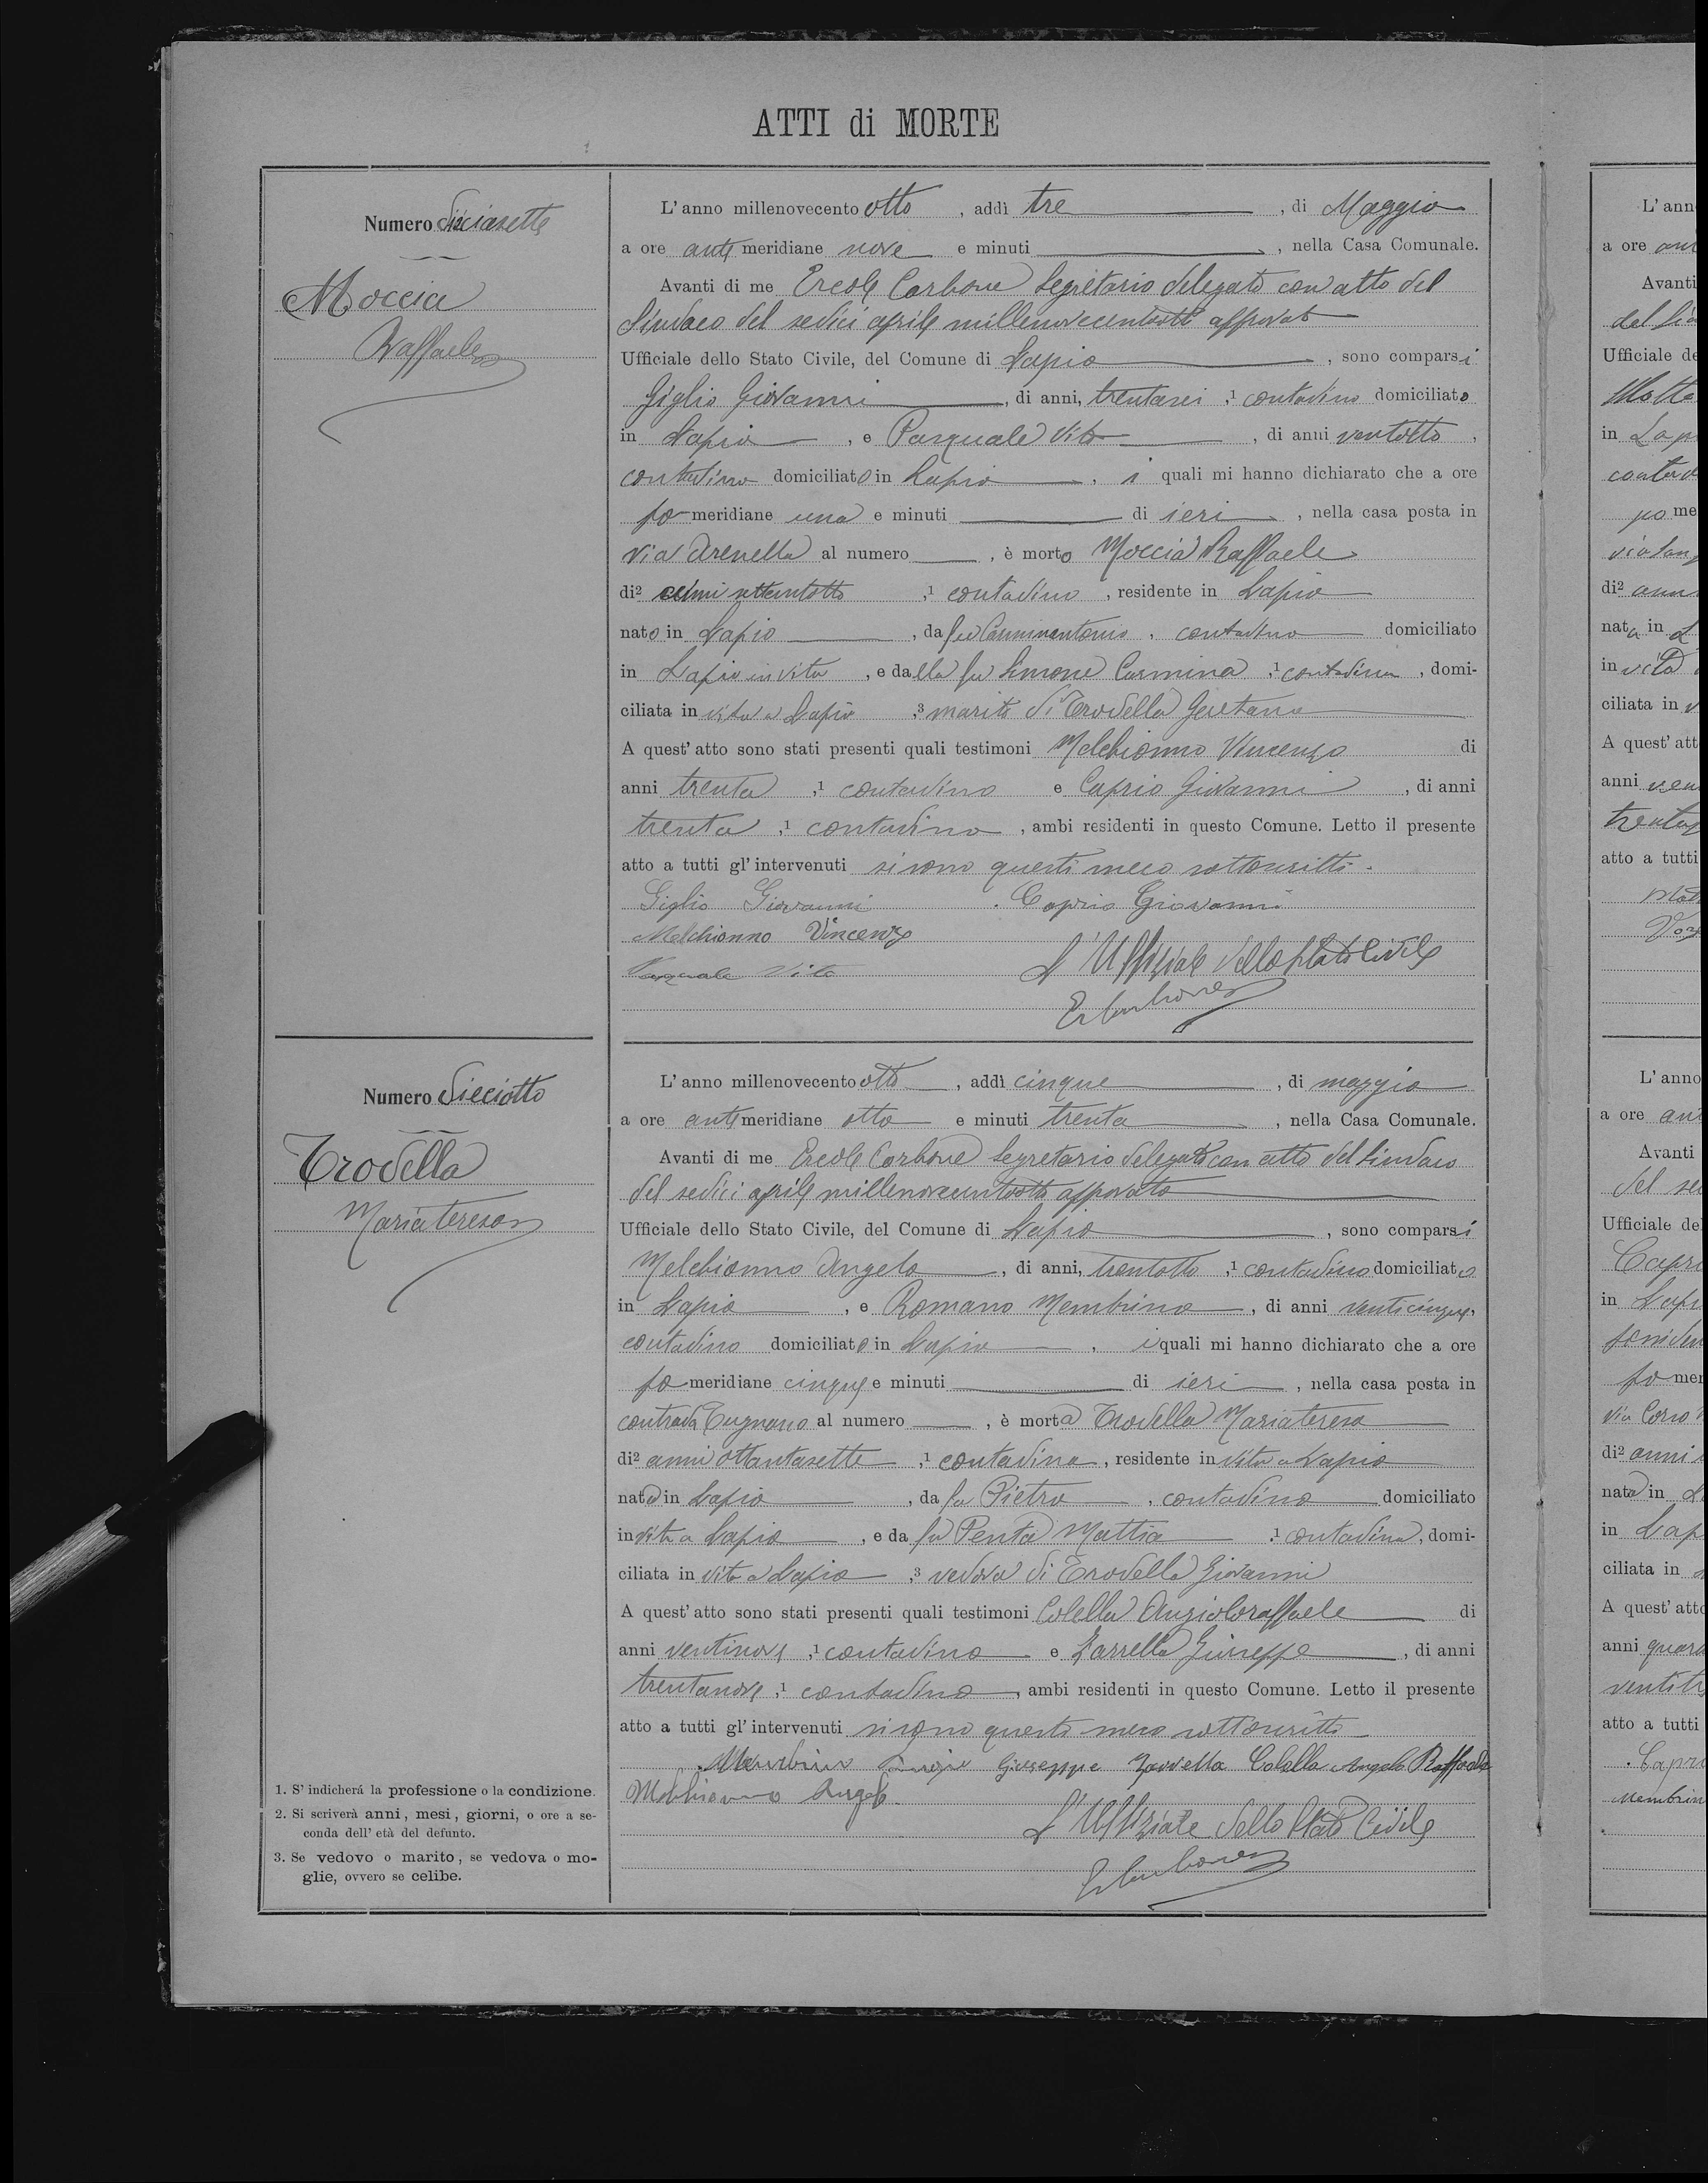 ATTI di MORTE
Numero diciasette
Moccia
Raffaele
L'anno millenovecento otto, addì tre, di Maggio
a ore antemeridiane nove e minuti, nella Casa Comunale.
Avanti di me Ercole Carbone Segretario delegato con atto del
Sindaco del sedici aprile millenovecentootto approvato
Ufficiale dello Stato Civile, del Comune di Lapio, sono comparsi
Giglio Giovanni, di anni, trentasei ,1 contadino domiciliato
in Lapio, e Pasquale Vito, di anni ventotto,
contadino domiciliato in Lapio, i quali mi hanno dichiarato che a ore
pomeridiane una e minuti di ieri, nella casa posta in
via Arenella al numero, è morto Moccia Raffaele
di2 anni ,1 contadino, residente in Lapio
nato in Lapio, da fu Carminantonio, contadino domiciliato
in Lapio in vita, e dalla fu Simone Carmina ,1 contadina, domi-
ciliata in vita a Lapio ,3 marito di Trodella Gaetana
A quest'atto sono stati presenti quali testimoni Melchionno Vincenzo di
anni trenta ,1 contadino e Caprio Giovanni, di anni
trenta ,1 contadino, ambi residenti in questo Comune. Letto il presente
atto a tutti gl'intervenuti si sono questi meco sottoscritti.
Giglio Giovanni Caprio Giovanni
Melchionno Vincenzo
Pasquale Vito L'Uffiziale dello Stato Civile
ECarbone
Numero dieciotto
Trodella
Mariateresa
L'anno millenovecento otto, addì cinque, di maggio
a ore antemeridiane otto e minuti trenta, nella Casa Comunale.
Avanti di me Ercole Carbone Segretario delegato con atto del Sindaco
del sedici aprile millenovecentootto approvato
Ufficiale dello Stato Civile, del Comune di Lapio, sono comparsi
Melchionno Angelo, di anni, trentotto ,1 contadino domiciliato
in Lapio, e Romano Membrino, di anni venticinque,
contadino domiciliato in Lapio, i quali mi hanno dichiarato che a ore
pomeridiane cinque e minuti di ieri, nella casa posta in
contrada al numero, è morta Trodella Mariateresa
di2 anni ottantasette ,1 contadina, residente in vita a Lapio
nata in Lapio, da fu Pietro, contadino domiciliato
in vita a Lapio, e da fu Penta Mattia ,1 contadina, domi-
ciliata in vita a Lapio ,3 vedova di Trodella Giovanni
A quest'atto sono stati presenti quali testimoni Colella Angioloraffaele di
anni ventinove ,1 contadino e Zarrella Giuseppe, di anni
trentanove ,1 contadino, ambi residenti in questo Comune. Letto il presente
atto a tutti gl'intervenuti si sono questi meco sottoscritti
Membrino Giuseppe Zarrella Colella Angelo Raffaele
Melchionno Angelo.
L'Uffiziale dello Stato Civile
ECarbone
1. S'indicherá la professione o la condizione.
2. Si scriverà anni, mesi, giorni, o ore a se-
conda dell'età del defunto.
3. Se vedovo o marito, se vedova o mo-
glie, ovvero se celibe.
L'ann
a ore
Avanti
Ufficiale de
in
di2
in vita
ciliata in
A quest'att
anni
atto a tutti
L'anno
a ore
Avanti
Ufficiale del
in
di2 anni
nata in
in Lap
ciliata in
A quest'atto
anni
atto a tutti